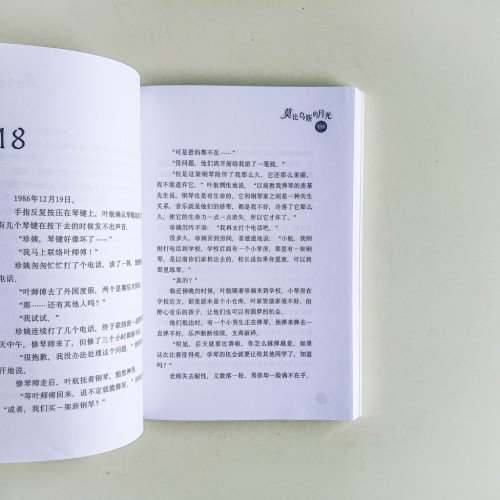 18
1986年12月19日。
手指反复按压在琴键上，叶航确认琴键
有几个琴键在按下去的时候没不出声音
“珍姨，琴键好像坏了……”
“我马上联络叶师傅！”
珍姨匆匆忙忙打了个电话，谈了一阵，
电话。
“叶师傅去了外国度假，两个星期后才
“那……还有其他人吗？”
“我试试。”
珍姨连续打了几个电话，终于联络到一
天中午，修琴师来了，但修了三个小时都修不
“很抱歉，我没办法处理这个问题。”
汗地说。
修琴师走后，叶航抚着钢琴，黯然神伤。
“等叶师傅回来，说不定就能修好。”
“或者，我们买一架新钢琴？”
莫比乌斯的月光
“可是爸妈都不在……”
“没问题，他们离开前给我留了一笔钱。”
“但是这架钢琴陪伴了我那么久，它还那么美丽，
我不能遗弃它。”叶航惆怅地说，“以前教我弹琴的袁基
先生说，钢琴也是有生命的，它和钢琴家之间是一种共生
关系，音乐就是他们的脐带，都是我不好，冷落了它那么
久，使它的生命力一点一点消失，所以它才坏了。”
珍姨沉吟不语：“我再去打个电话吧。”
没多久，珍姨回到房间，喜道道地说：“小航，我刚
刚打电话到学校，学校后面有一个小琴房，那里有一架钢
琴，是以前你们家捐出去的，校长说如果你愿意，可以到
那里练琴。”
“真的？”
临近傍晚的时候，叶航随着珍姨来到学校，小琴房在
学校后方，那里原本是个小仓库，叶家资助家境不好，但
醉心音乐的孩子，让他们也可以有圆梦的机会。
他们抵达时，有一个小男生正在弹琴，他弹来弹去一
直弹不好，乐声断断续续，支离破碎。
“明旭，后天就要比赛啦，你怎么越弹越差，如果
这次比赛没得奖，学琴的机会就要让给其他同学了，知道
吗？”
老师失去耐性，又数落一轮，男孩却一脸满不在乎，